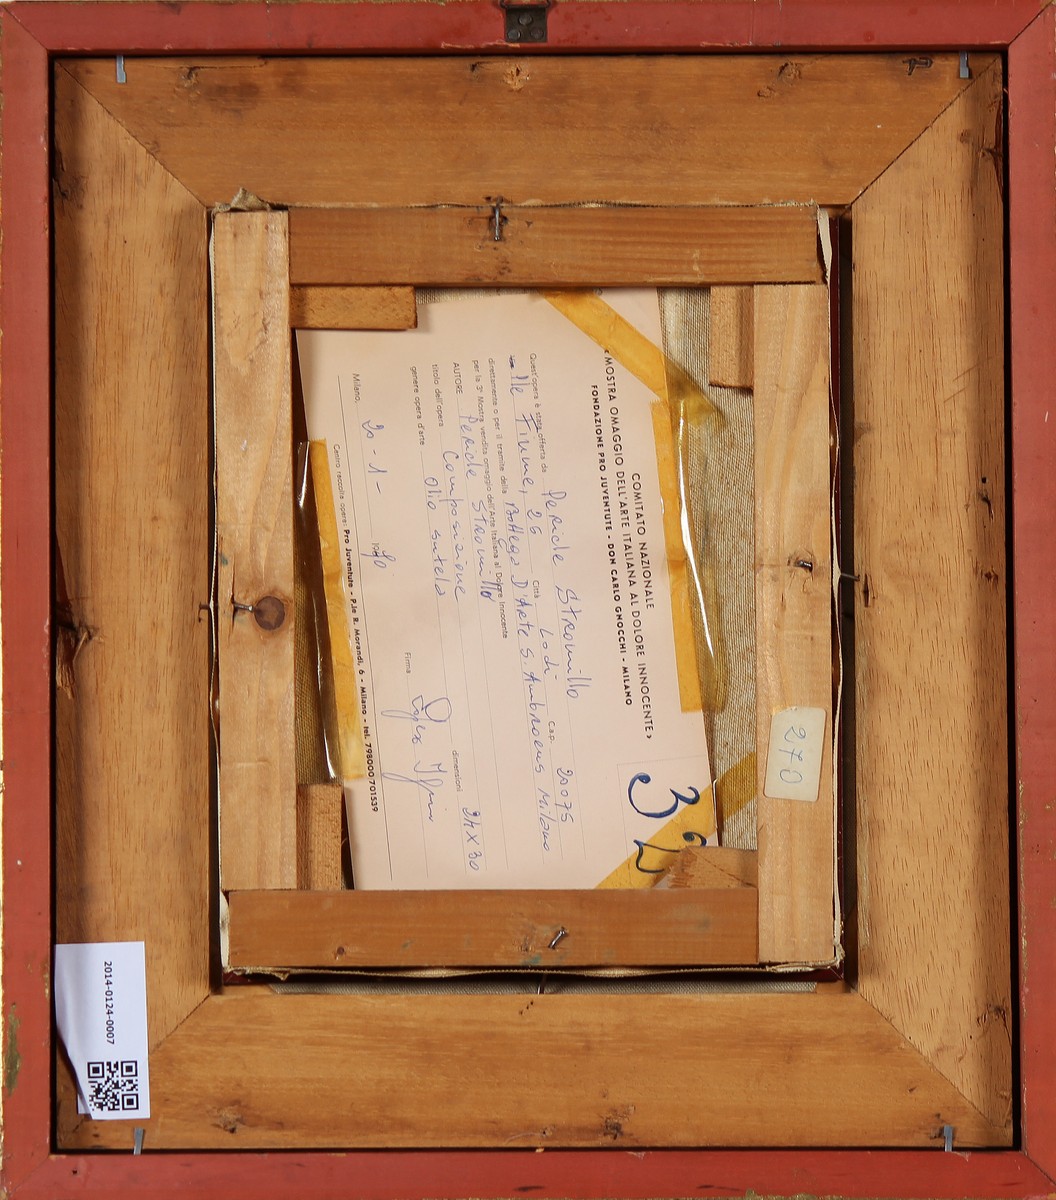 COMITATO NAZIONALE
«MOSTRA OMAGGIO DELL'ARTE ITALIANA AL DOLORE INNOCENTE»
FONDAZIONE PRO JUVENTUTE - DON CARLO GNOCCHI - MILANO
32
Quest'opera è stata offerta da Pericle Stromillo
V.le Fiume, 26 Città Lodi cap. 20075
direttamente o per il tramite della Bottega D'Arte S. Ambroeus Milano
per la 3ª Mostra vendita omaggio dell'Arte Italiana al Dolore Innocente
AUTORE Pericle Stromillo
titolo dell'opera Composizione
genere opera d'arte olio su tela dimensioni 24 x 30
Milano, 20-1-1970 Firma
Centro raccolta opere: Pro Juventute - P.le R. Morandi, 6 - Milano - tel. 798000/701539
270
2014-0124-0007